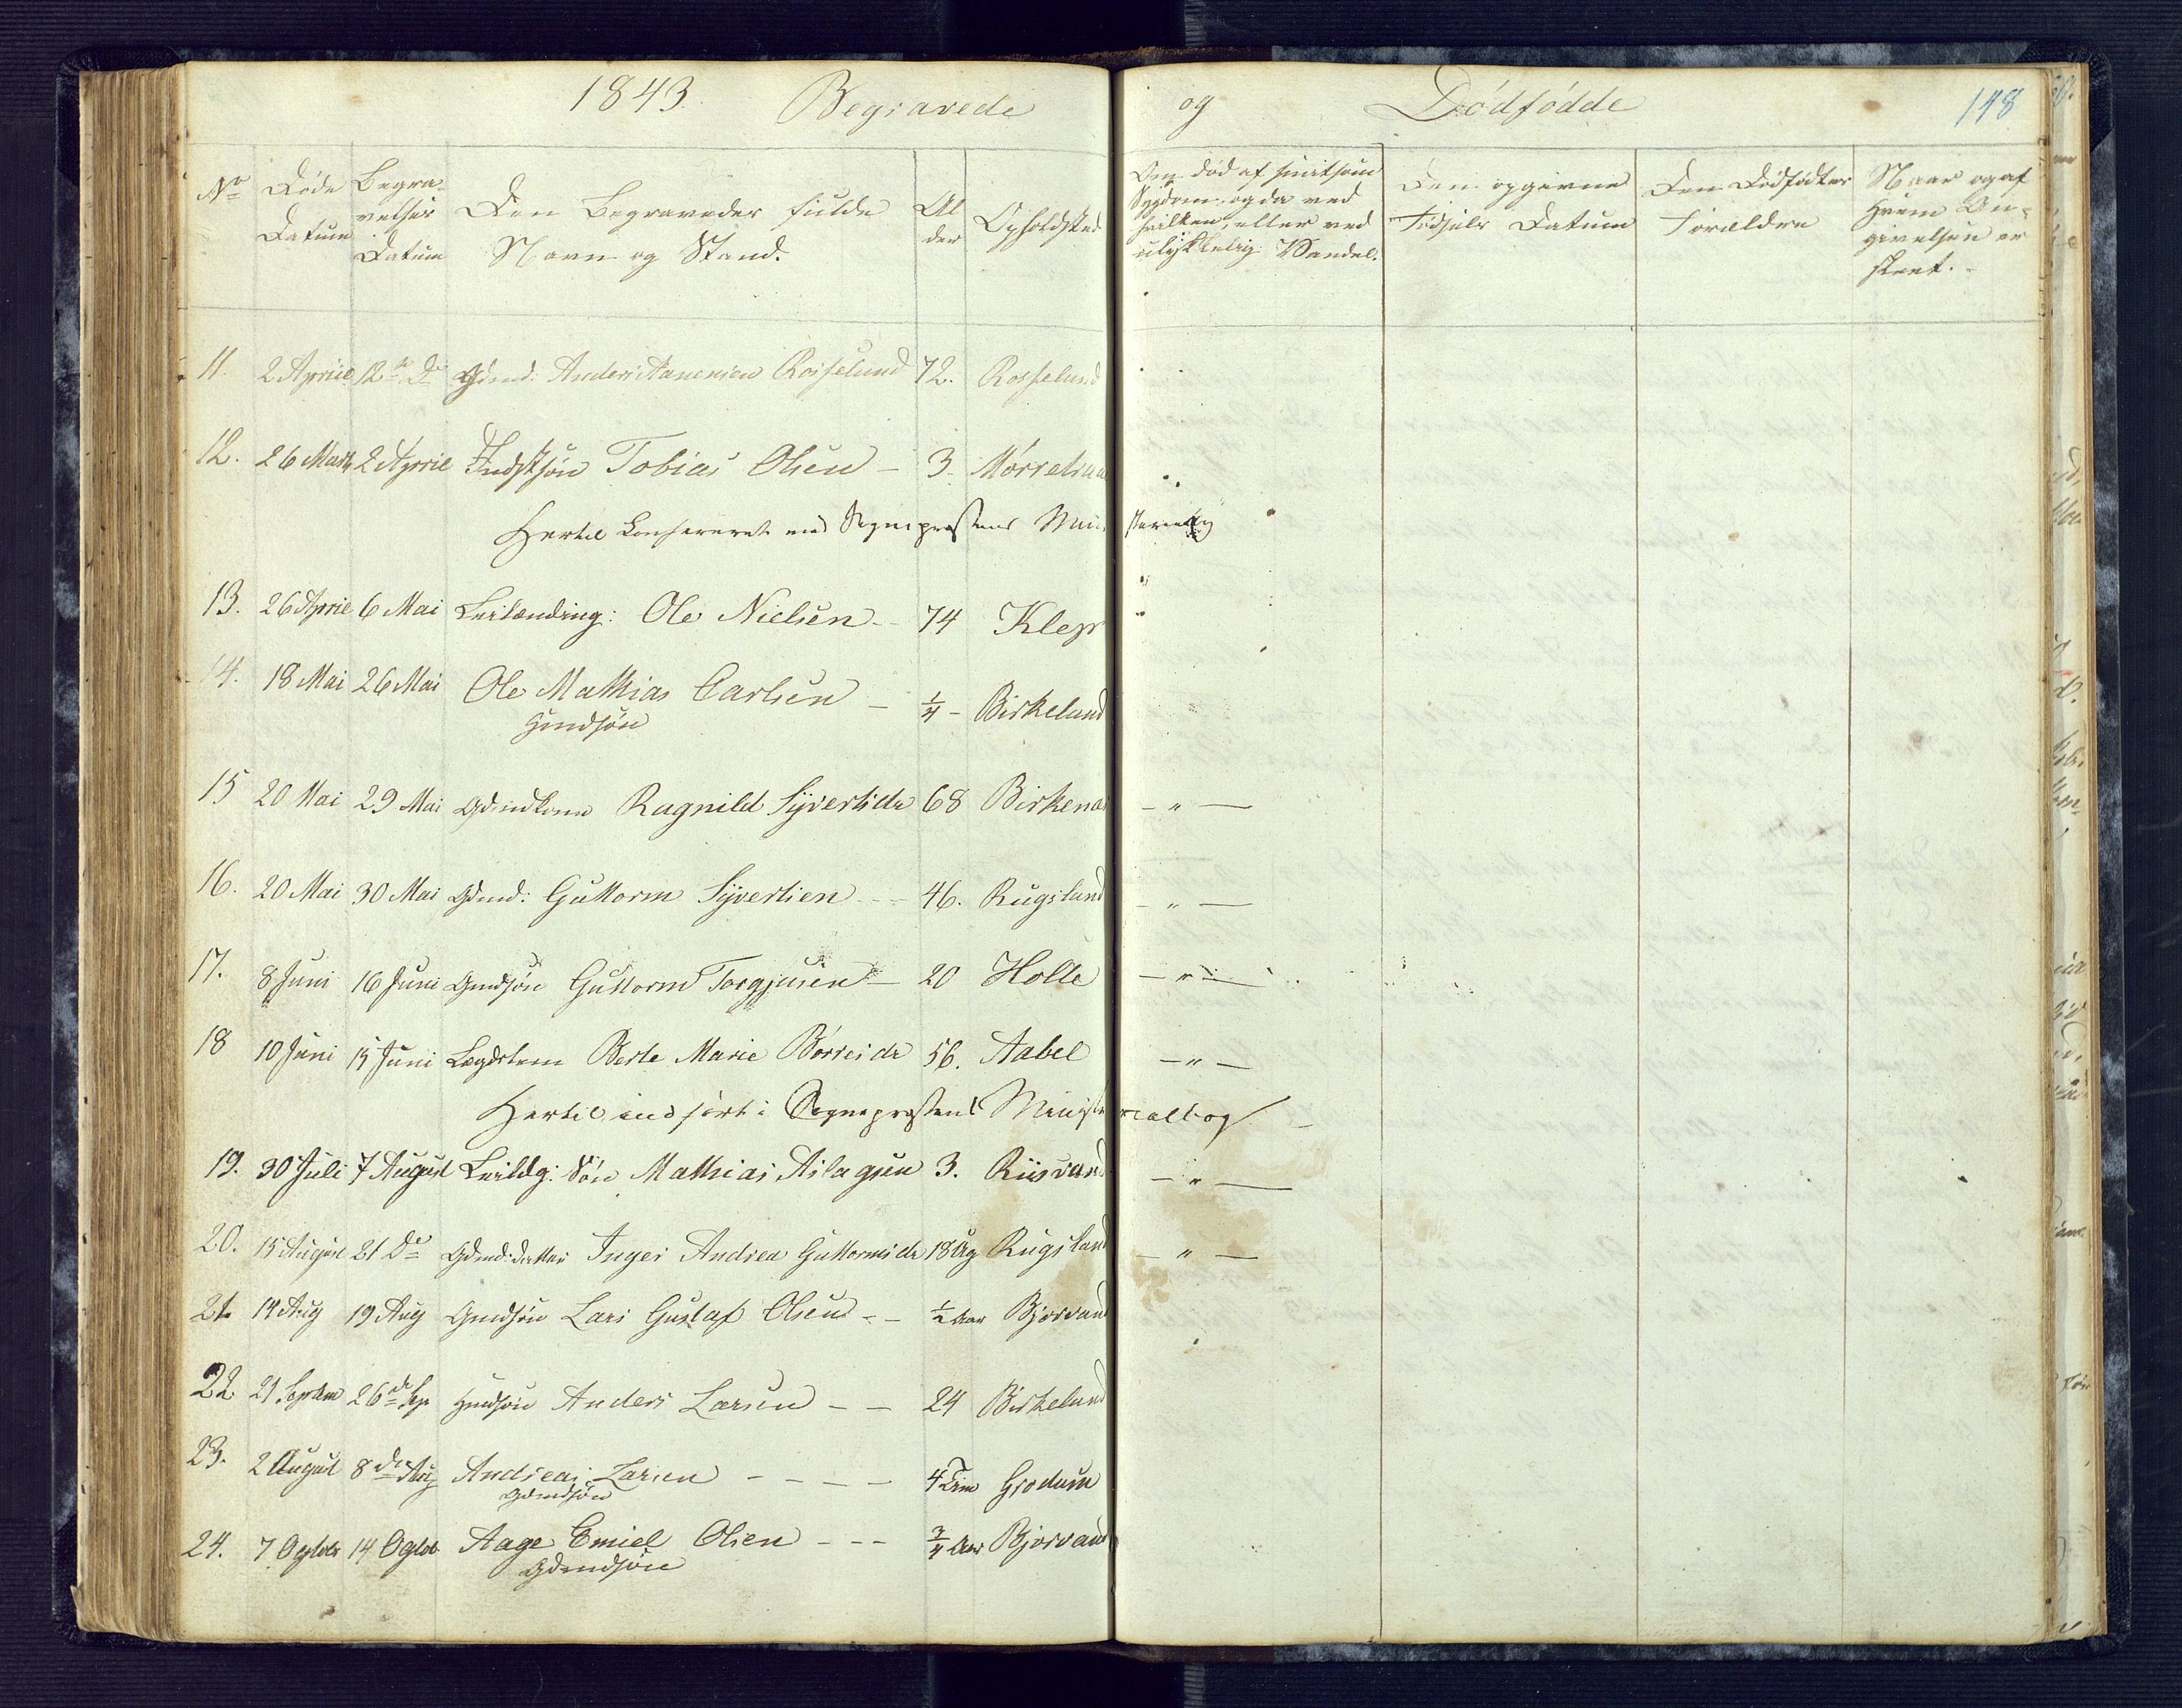 1843. Begravede og Dödfödde 148
No Døde Datum Begravelses Datum Den Begravedes fulde Navn og Stand. Alder Opholdsted Om død af smitsom Sygdom, og da ved hvilken, eller ved ulykkelig Vandel. Den opgivne Fødsels Datum Den Dødfødtes Forældre Naar og af Hvem Angivelsen er skeet.
11. 2 April 12te Do Gdmd. Anders Aanensen Rosseland 72. Rosseland
12. 26 Marts 2 April Indstsøn Tobias Olsen - 3. Mörrehaa
Hertil konfereret med Sogneprestens Ministerialbog
13. 26 April 6 Mai Leilænding: Ole Nielsen - 74 Klep
14. 18 Mai 26 Mai Ole Mathias Carlsen - 1/4 - Birkeland
Hmdsøn
15 20 Mai 29 Mai Gdmdkone Ragnild Syvertsdr 68 Birkenæs - " -
16. 20 Mai 30 Mai Gdmd: Guttorm Syvertsen - - 46. Rugsland - " -
17. 8 Juni 16 Juni Gmdsøn Guttorm Torgjusen - 20 Holte - " -
18 10 Juni 15 Juni Lægdslem Berte Marie Börresdr 56. Aabel - " -
Hertil indført i Sogneprestens Ministerialbog
19. 30 Juli 7 August Leildg: Søn Mathias Aslagsen 3. Riisvand - " -
20. 15 August 21 Do Gdmd: datter Inger Andrea Guttormsdr 18 Ug Rugsland - " -
21. 14 Aug 19 Aug Gmdsøn Lars Gustaf Olsen - - 1/2 Aar Bjorvand
22. 21 Septem 26de Sep Hmdsøn Anders Larsen - - 24 Birkeland
23. 2 August 8de Aug Andreas Larsen - - - 4 Tim Grodum
Gdmdsøn
24. 7 Ogtobr 14 Ogtob Aage Emiel Olsen - - - 3/4 Aar Bjorvand
Gdmdsøn